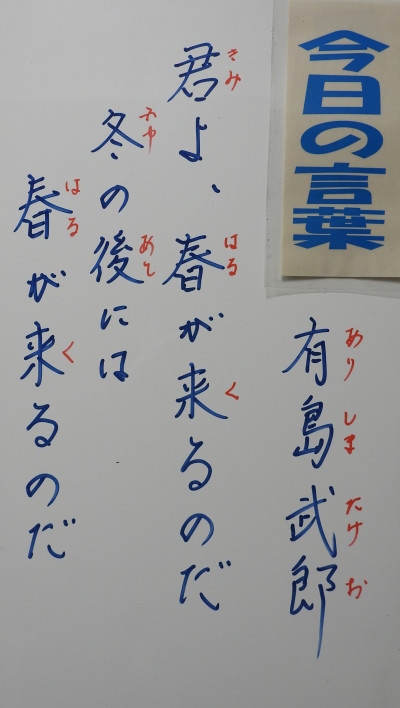 今日の言葉
有島武郎
ありしまたけお
君よ、春が来るのだ
きみ はる く
冬の後には
ふゆ あと
春が来るのだ
はる く